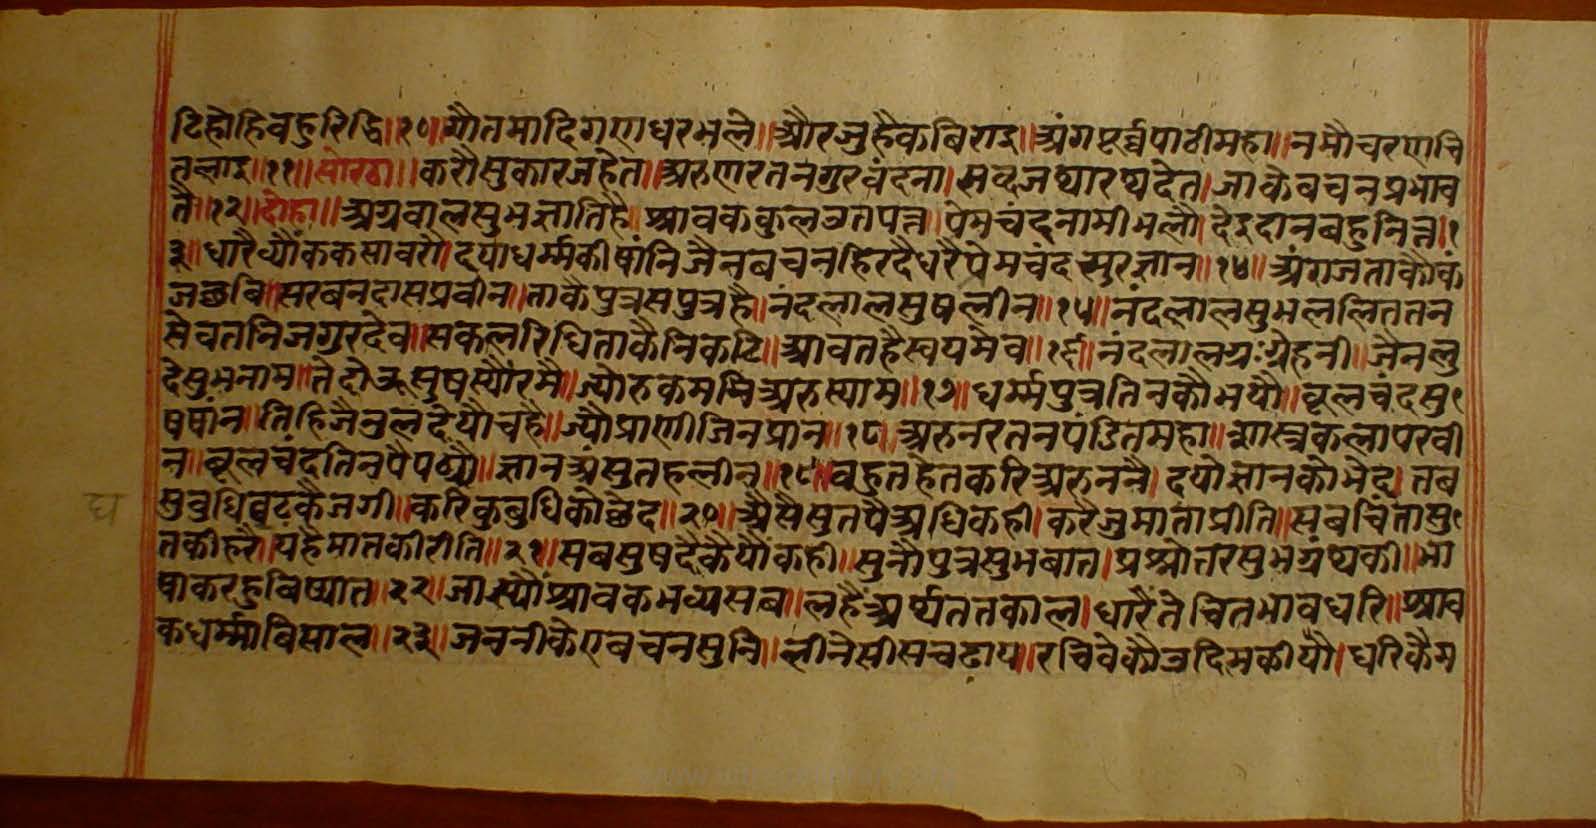 टिहोहिवहुरिद्धि॥१०॥गौतमादिगणधरभले॥औरजुहैकबिराइ॥अंगपूर्व्वपाठीमहा॥नमौचरणचि
तलाइ॥११॥सोरठा॥करौसुकारजहेत॥अरुणरतनगुरवंदना।सव्दजथारथदेत।जाकेबचनप्रभाव
तै॥१२॥दोहा॥अग्रवालसुभज्ञातिहै॥श्रावककुलउतपन्न॥पेमचंदनामीभलौ।देइदानबहुनित्त।१
३॥धारैव्यौंककसावरौ।दयाधर्म्मकीषांनिजैनबचनहिरदैधरैप्रेमचंदसुरज्ञान॥१४॥अंगजताकौकं
जछबि॥सरबनदासप्रवीन॥ताकेपुत्रसपुत्रहै॥नंदलालसुषलीन॥१५॥नंदलालसुभललिततन
सेवतनिजगुरदेव॥सकलरिधिताकैनिकटि॥आवतहैस्वयमेव॥१६॥नंदलालग्रःग्रेहनी॥जैनलु
देसुभनाम॥तेदोऊसुषस्यौंरमै॥ज्यौरुकममिअरुस्याम॥१७॥धर्म्मपुत्रतिनकौभयौ॥बूलचंदसु
षषांन॥तिहिजैनुलदेयौचहै॥ज्यौप्राणीजिनप्रान॥१८॥अरुनरतनपंडितमहा॥शास्त्रकलापरवी
न॥बूलचंदतिनपैपढ्यौ॥ज्ञानअंसुतहलीन॥१९॥बहुतहेतकरिअरुननै।दयोज्ञानकोभेद।तब
सुबुधिघटकैजगी॥करिकुबुधिकोछेद॥२०॥अैसैसुतपैअधिकही।करैजुमाताप्रीति॥सबचिंतासु
तकीहरै।यहैमातकीरीति॥२१॥सबसुषदैकैयौंकही॥सुनौपुत्रसुभबात।प्रश्नोत्तरसुभग्रंथ्यकी॥भा
षाकरहुबिष्यात॥२२॥जास्यौंश्रावकभव्यसब॥लहैंअर्थ्यततकाल।धारैंतेचितभावधरि॥श्राव
कधर्म्मबिसाल॥२३॥जननीकेएबचनसुनि॥लीनेसीसचढाय॥रचिवेकौउदिमकीयौ।धरिकैम